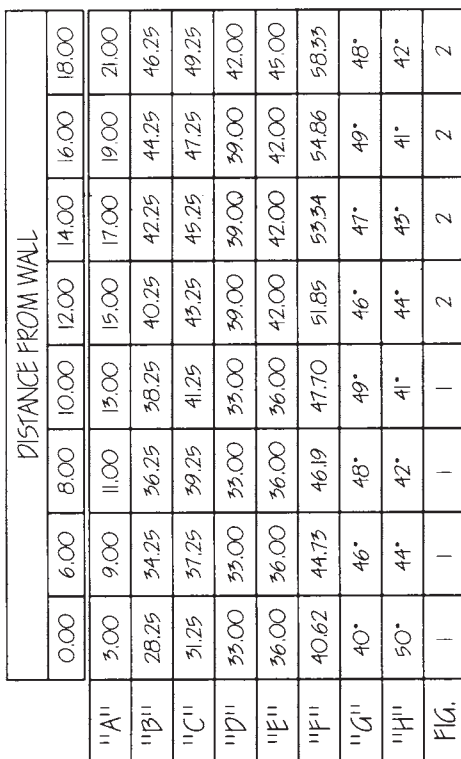 DISTANCE FROM WALL
0.00 6.00 8.00 10.00 12.00 14.00 16.00 18.00
"A" 3.00 9.00 11.00 13.00 15.00 17.00 19.00 21.00
"B" 28.25 34.25 36.25 38.25 40.25 42.25 44.25 46.25
"C" 31.25 37.25 39.25 41.25 43.25 45.25 47.25 49.25
"D" 33.00 33.00 33.00 33.00 39.00 39.00 39.00 42.00
"E" 36.00 36.00 36.00 36.00 42.00 42.00 42.00 45.00
"F" 40.62 44.73 46.19 47.70 51.85 53.34 54.86 58.33
"G" 40° 46° 48° 49° 46° 47° 49° 48°
"H" 50° 44° 42° 41° 44° 43° 41° 42°
FIG. 1 1 1 1 2 2 2 2